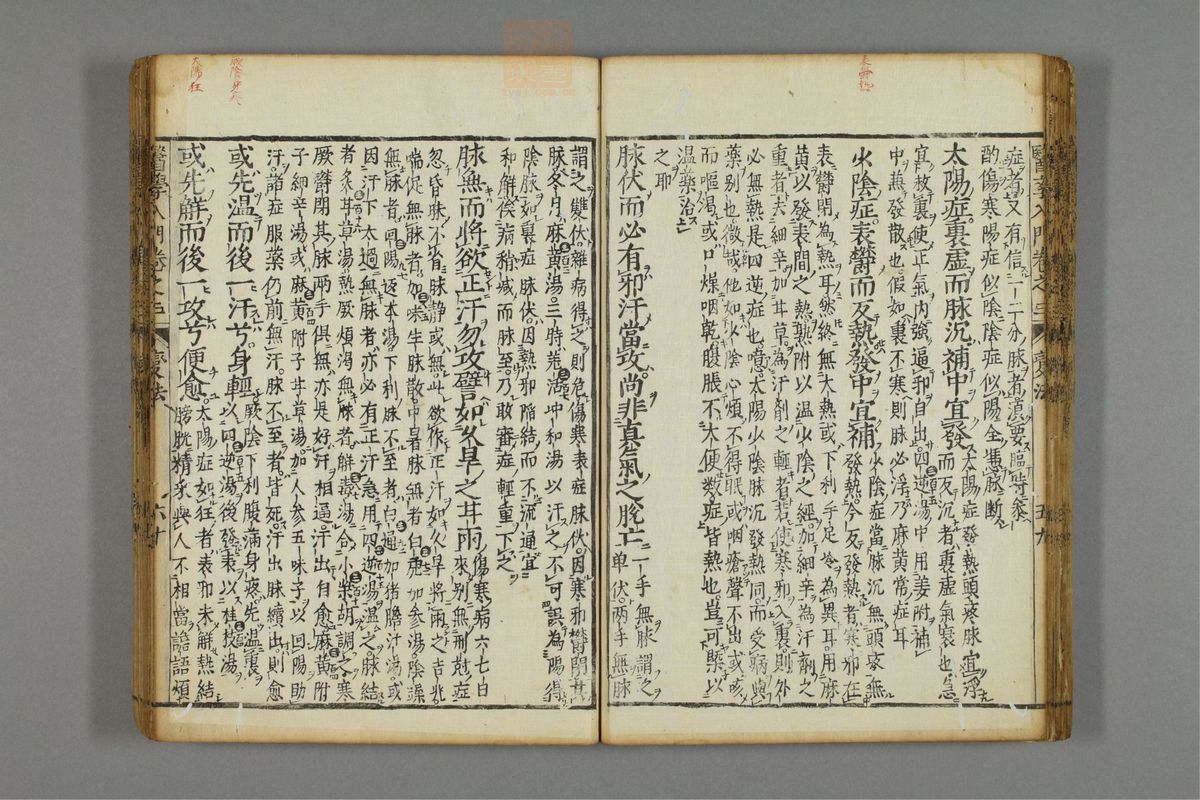 表鬱熱
症者又有信一二分脉者須要臨時參
酌傷寒陽症似陰陰症似陽全憑脉斷
太陽症裏虛而脉沉補中宜發太陽症發熱頭疼脉宜浮
而反沉者裏虛氣衰也急
宜救裏使正氣內强逼邪自出四逆湯中用姜附補
中兼發散也假如裏不寒則脉必浮乃麻黃常症耳
少陰症表鬱而反熱發中宜補少陰症當脉沉無頭疼無
發熱今反發熱者寒邪在
表鬱閉為熱耳然終無大熱或下利手足冷為異耳用麻
黃以發表間之熱附以溫少陰之經加細辛為汗劑之
重者去細辛加甘草為汗劑之輕者若使寒邪入裏則外
必無熱是四逆症也噫太陽少陰脉沉發熱同而受病與
藥別也微哉他如少陰心煩不得眠或咽瘡聲不出或咳
而嘔渴或口燥咽乾腹脹不大便數症皆熱也豈可槩以
溫藥治
之耶
脉伏而必有邪汗當攻尚非真氣之脫亡一手無脉謂之
單伏兩手無脉
謂之雙伏雜病得之則危傷寒表症脉伏因寒邪鬱閉其
脉冬月麻黃湯三時羌活冲和湯以汗之不可誤為陽得
陰脉如裏症脉伏因熱邪陷結而不流通宜
和解俟病稍減而脉至乃敢審症輕重下之
脉無而將欲正汗勿攻譬如久旱之甘雨傷寒病六七日
來別無刑尅症
忽昏昧不省脉静或無此欲作正汗如久旱將雨之吉兆
喘促無脉者加味生脉散中暑脉無者白虎加參湯陰躁
無脉者回陽返本湯下利脉不至者白通加猪膽汁湯或
因汗下太過無脉者亦必有正汗急用四逆湯溫之脉結
者炙甘草湯熱厥煩渴無脉者解毒湯合小柴胡調之寒
厥鬱閉其脉兩手俱無亦是好汗相逼汗出自愈麻黃附
子細辛湯或麻黃附子甘草湯加人參五味子以回陽助
汗諸症服藥仍前無汗脉不至者皆死汗出脉續出則愈
或先溫而後一汗兮身輕厥陰下利腹滿身疼先溫裏
以四逆湯後發表以桂枝湯
或先解而後一攻兮便愈太陽症如狂者表邪未解熱結
膀胱精采與人不相當譫語煩
厥陰身疼
太陽狂
醫學入門卷之三
變法
六十